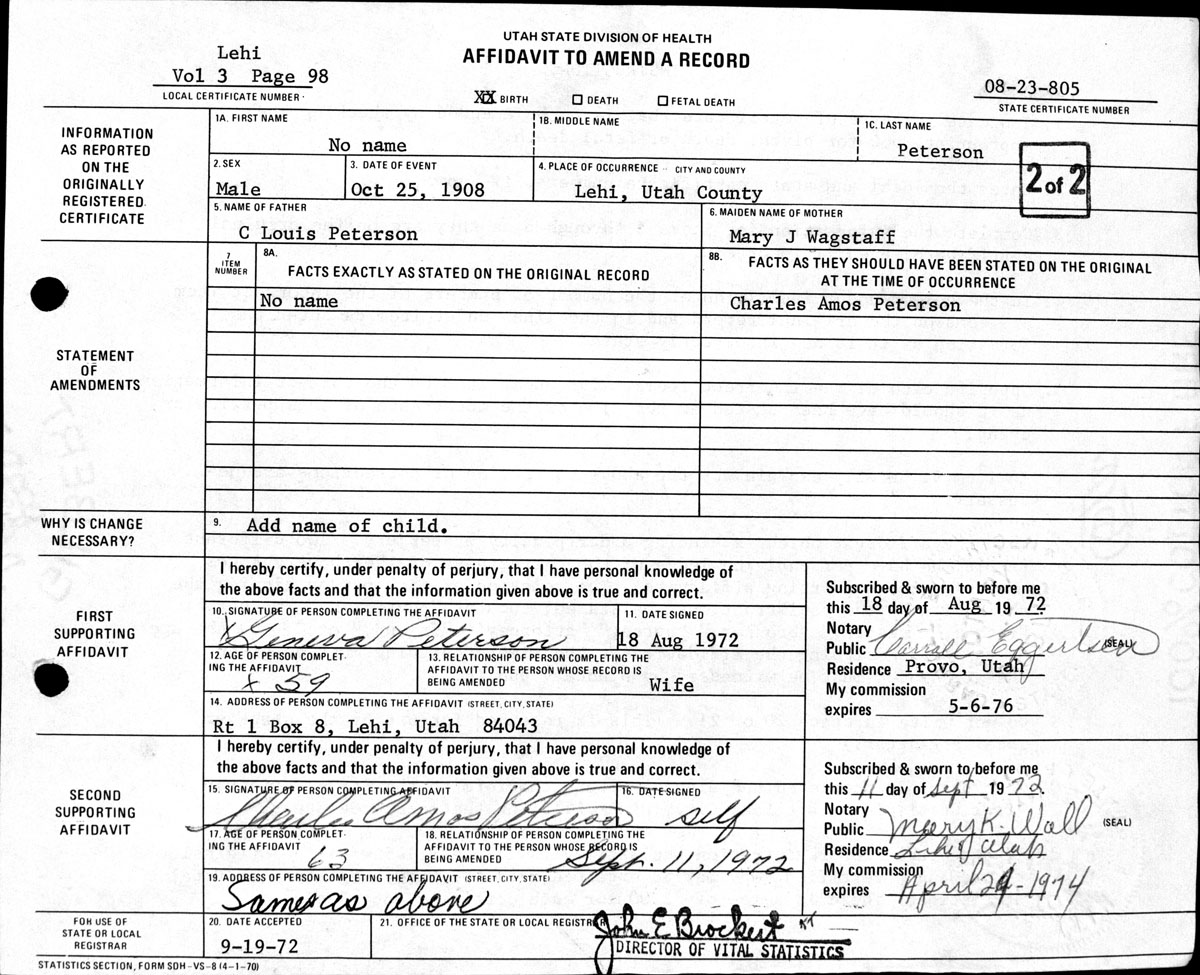 UTAH STATE DIVISION OF HEALTH
AFFIDAVIT TO AMEND A RECORD
Lehi
Vol 3 Page 98
LOCAL CERTIFICATE NUMBER
XX BIRTH ☐ DEATH ☐ FETAL DEATH
08-23-805
STATE CERTIFICATE NUMBER
INFORMATION
AS REPORTED
ON THE
ORIGINALLY
REGISTERED
CERTIFICATE
1A. FIRST NAME 1B. MIDDLE NAME 1C. LAST NAME
No name Peterson
2 of 2
2. SEX 3. DATE OF EVENT 4. PLACE OF OCCURRENCE - CITY AND COUNTY
Male Oct 25, 1908 Lehi, Utah County
5. NAME OF FATHER 6. MAIDEN NAME OF MOTHER
C Louis Peterson Mary J Wagstaff
STATEMENT
OF
AMENDMENTS
7
ITEM
NUMBER
8A.
FACTS EXACTLY AS STATED ON THE ORIGINAL RECORD
8B. FACTS AS THEY SHOULD HAVE BEEN STATED ON THE ORIGINAL
AT THE TIME OF OCCURRENCE
No name Charles Amos Peterson
WHY IS CHANGE
NECESSARY?
9. Add name of child.
FIRST
SUPPORTING
AFFIDAVIT
I hereby certify, under penalty of perjury, that I have personal knowledge of
the above facts and that the information given above is true and correct.
10. SIGNATURE OF PERSON COMPLETING THE AFFIDAVIT 11. DATE SIGNED
X Geneva Peterson 18 Aug 1972
12. AGE OF PERSON COMPLET-
ING THE AFFIDAVIT
x 59
13. RELATIONSHIP OF PERSON COMPLETING THE
AFFIDAVIT TO THE PERSON WHOSE RECORD IS
BEING AMENDED Wife
14. ADDRESS OF PERSON COMPLETING THE AFFIDAVIT (STREET, CITY, STATE)
Rt 1 Box 8, Lehi, Utah 84043
Subscribed & sworn to before me
this 18 day of Aug 19 72
Notary
Public Carroll Eggertsen (SEAL)
Residence Provo, Utah
My commission
expires 5-6-76
SECOND
SUPPORTING
AFFIDAVIT
I hereby certify, under penalty of perjury, that I have personal knowledge of
the above facts and that the information given above is true and correct.
15. SIGNATURE OF PERSON COMPLETING AFFIDAVIT 16. DATE SIGNED
Charles Amos Peterson self
17. AGE OF PERSON COMPLET-
ING THE AFFIDAVIT
63
18. RELATIONSHIP OF PERSON COMPLETING THE
AFFIDAVIT TO THE PERSON WHOSE RECORD IS
BEING AMENDED Sept. 11, 1972
19. ADDRESS OF PERSON COMPLETING THE AFFIDAVIT (STREET, CITY, STATE)
Same as above
Subscribed & sworn to before me
this 11 day of Sept 19 72.
Notary
Public Mary K. Wall (SEAL)
Residence Utah
My commission
expires April 24-1974
FOR USE OF
STATE OR LOCAL
REGISTRAR
20. DATE ACCEPTED 21. OFFICE OF THE STATE OR LOCAL REGISTRAR
9-19-72 John E Brockert
DIRECTOR OF VITAL STATISTICS
STATISTICS SECTION, FORM SDH-VS-8 (4-1-70)